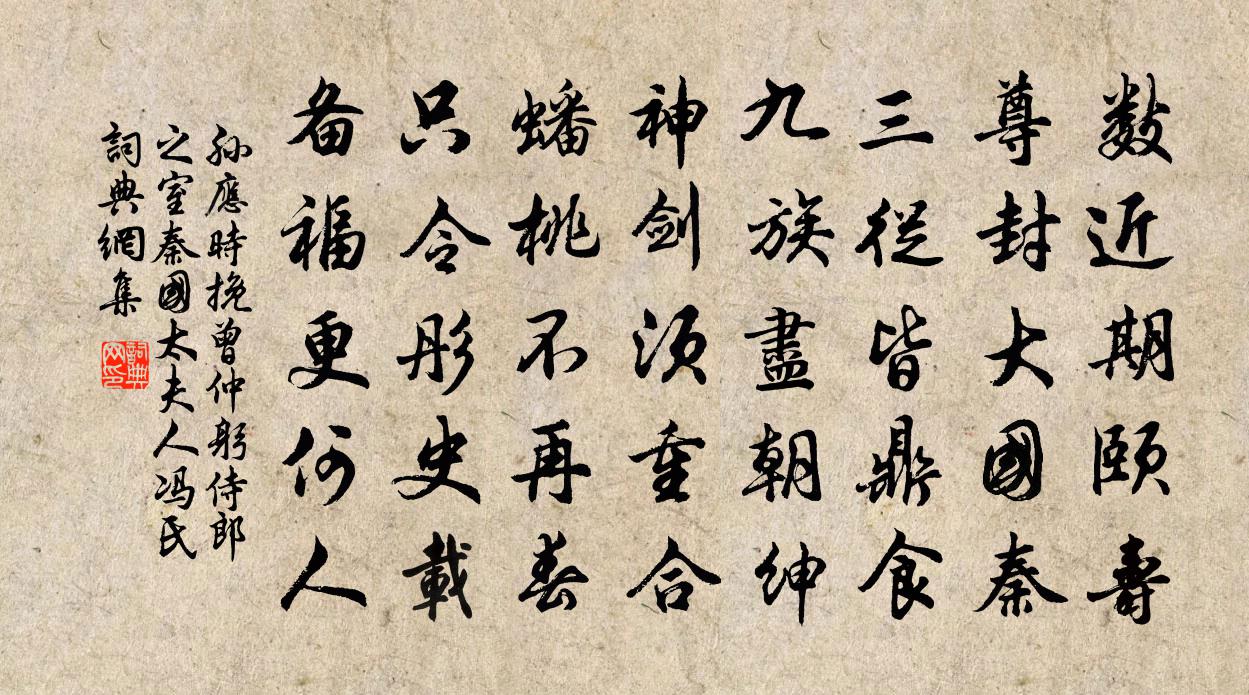 数近期颐壽
尊封大國秦
三從皆鼎食
九族盡朝紳
神劍須重合
蟠桃不再春
只令彤史載
备福更何人
孙應時挽曾仲躬侍郎
之室秦國太夫人冯氏
詞典網集
詞典网印